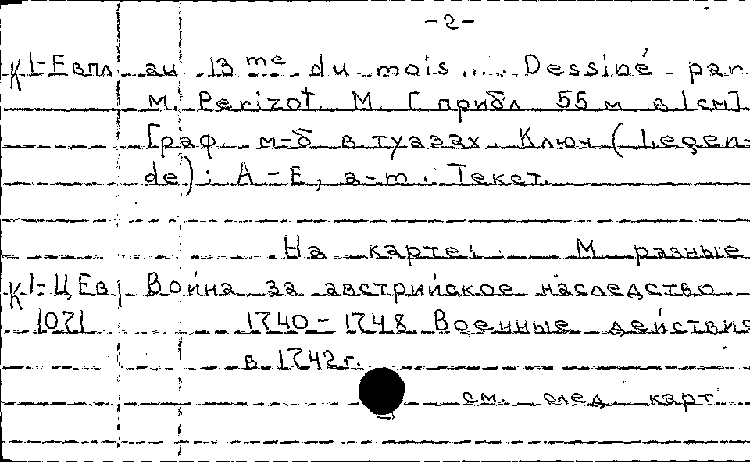 -2-
К1-Евпл au 13me du mois.... Dessiné par
M. Perizot M. [прибл 55 м в 1см].
Граф. м-б в туазах. Ключ (Legen-
de): A-E, a-m. Текст.
На карте: М разные
К1-ЦЕв Война за австрийское наследство
1071 1740-1748 Военные действия
в 1742г.
см. след карт